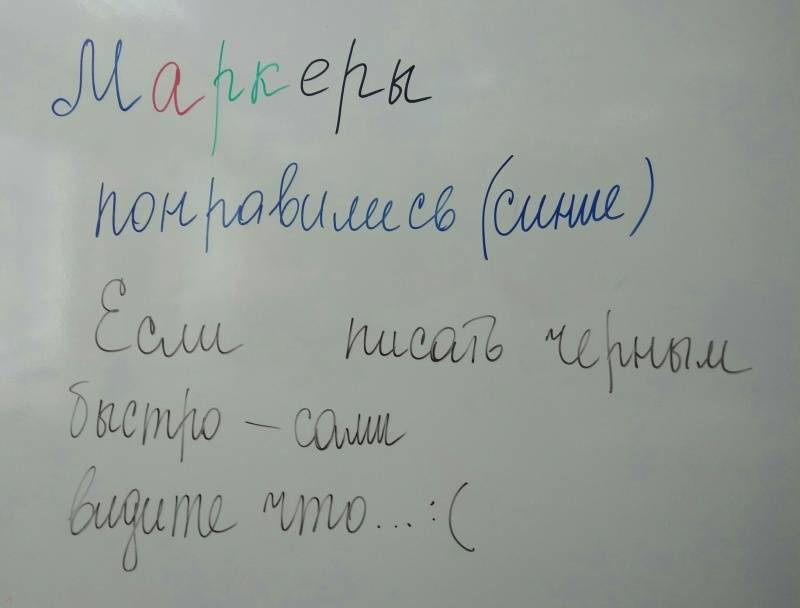 Маркеры
понравились (синие)
Если писать черным
быстро – сами
видите что... :(